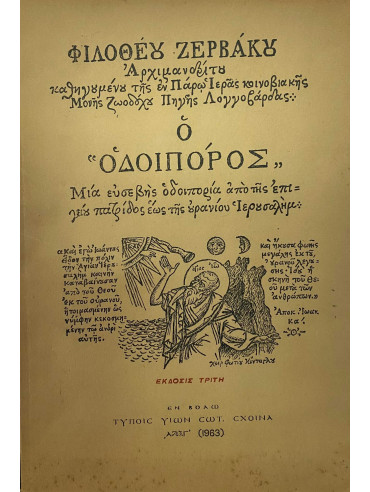 ΦΙΛΟΘΕΟΥ ΖΕΡΒΑΚΟΥ
Ἀρχιμανδρίτου
καθηγουμένου τῆς ἐν Πάρῳ Ἱερᾶς κοινοβιακῆς
Μονῆς Ζωοδόχου Πηγῆς Λογγοβάρδας
Ὁ
"ὉΔΟΙΠΟΡΟΣ"
Μία εὐσεβὴς ὁδοιπορία ἀπὸ τῆς ἐπι-
γείου πατρίδος ἕως τῆς οὐρανίου Ἱερουσαλήμ
Καὶ ἐγὼ Ἰωάννης
εἶδον τὴν πόλιν
τὴν Ἁγίαν Ἱερ
σαλὴμ καινὴν
καταβαίνουσαν
ἀπὸ τοῦ Θεοῦ
ἐκ τοῦ οὐρανοῦ,
ἡτοιμασμένην ὡς
νύμφην κεκοσμη-
μένην τῷ ἀνδρὶ
αὐτῆς.
καὶ ἤκουσα φωνῆς
μεγάλης ἐκ τοῦ
οὐρανοῦ λεγού-
σης· Ἰδοὺ ἡ
σκηνὴ τοῦ Θε-
οῦ μετὰ τῶν
ἀνθρώπων."
Ἀποκ. Ἰωαν.
κα΄
Χειρ Φωτίου Κόντογλου
ΕΚΔΟΣΙΣ ΤΡΙΤΗ
ΕΝ ΒΟΛΩ
ΤΥΠΟΙΣ ΥΙΩΝ ΣΩΤ. ΣΧΟΙΝΑ
(1963)